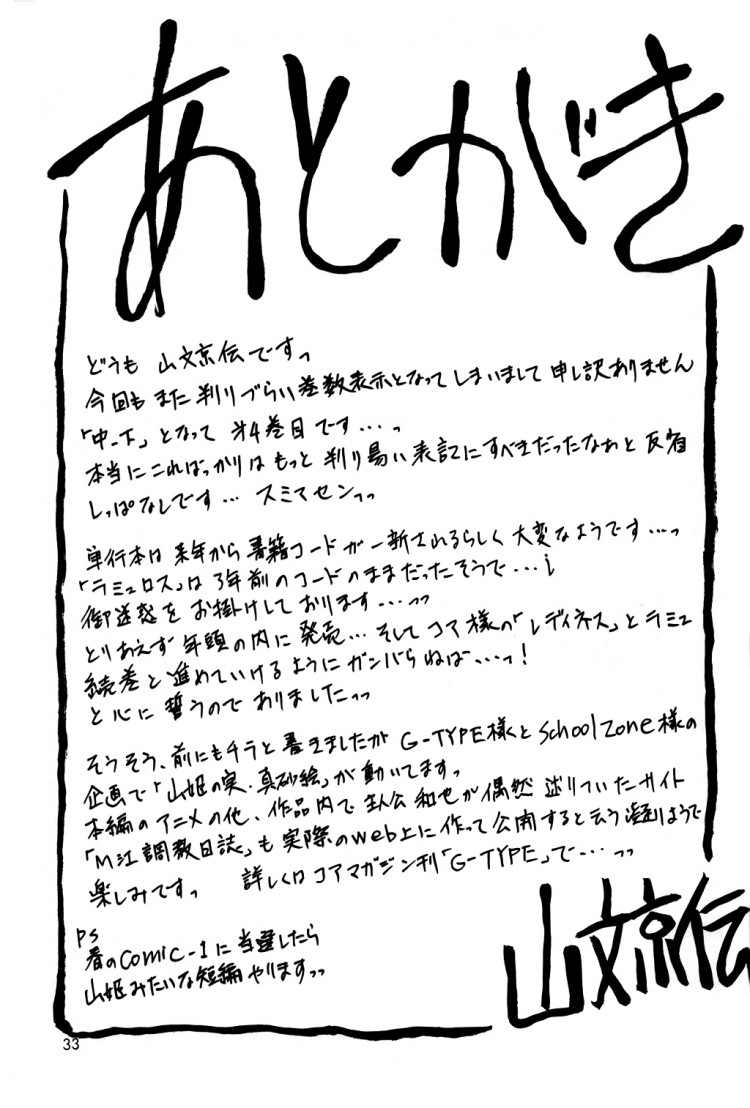 あとがき
どうも 山文京伝ですっ
今回もまた判りづらい巻数表示となってしまいまして申し訳ありません
「中-下」となって 㐧4巻目です…っ
本当にこればっかりはもっと判り易い表記にすべきだったなぁと反省
しっぱなしです… スミマセンっっ
単行本は来年から書籍コードが一新されるらしく大変なようです…っ
「ラミュロス」は3年前のコードのままだったそうで…
御迷惑をお掛けしております…っっ
とりあえず年頭の内に発売… そしてコア様の「レディネス」とラミュ
続巻と進めていけるようにガンバらねば…っ!
と心に誓うのでありましたっっ
そうそう、前にもチラと書きましたが G-TYPE様くとschoolzone様の
企画で「山姫の実・真砂絵」が動いてますっ
本編のアニメの他、作品内で主人公和也が偶然辿りついたサイト
「M江調教日誌」も実際のweb上に作って公開すると云う凝りようで
楽しみですっ 詳しくはコアマガジン刊「G-TYPE」で…っっ
PS
春のcomic-1に当選したら
山姫みたいな短編やりますっっ
山文京伝
33